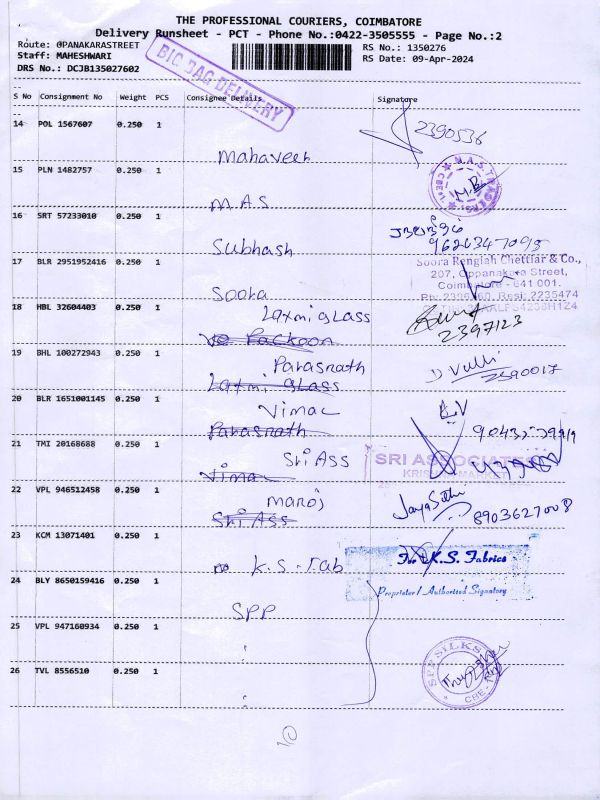 THE PROFESSIONAL COURIERS, COIMBATORE
Delivery Runsheet - PCT - Phone No.:0422-3505555 - Page No.:2
Route: OPANAKARASTREET
Staff: MAHESHWARI
DRS No.: DCJB135027602
RS No.: 1350276
RS Date: 09-Apr-2024
BIG BAG DELIVERY
S No Consignment No Weight PCS Consignee Details Signature
14 POL 1567607 0.250 1 Mahaveer 2390536
15 PLN 1482757 0.250 1 M.A.S
M.A.S. TRADERS
16 SRT 57233010 0.250 1 Subhash
17 BLR 2951952416 0.250 1 Soora
Soora Rengiah Chettiar & Co.,
207, Oppanakara Street,
Coimbatore - 641 001.
18 HBL 32604403 0.250 1 Laxmi glass
2397123
19 BHL 100272943 0.250 1 Parasnath
Laxmi glass
2390017
20 BLR 1651001145 0.250 1 Vimal
Parasnath
21 TMI 20168688 0.250 1 Sri Ass
Vimal
SRI ASSOCIATES
22 VPL 946512458 0.250 1 Manoj
Sri Ass
8903627008
23 KCM 13071401 0.250 1 K.S. Fab
For K.S. Fabrics
Proprietor / Authorised Signatory
24 BLY 8650159416 0.250 1 SPP
25 VPL 947160934 0.250 1
26 TVL 8556510 0.250 1
SPP SILKS